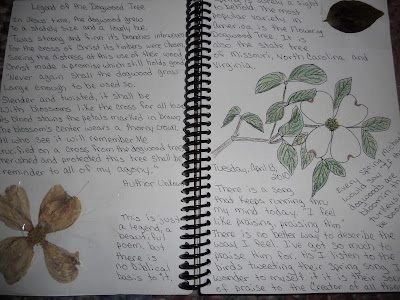 Legend of the Dogwood Tree
In Jesus time, the dogwood grew
To a stately size and a lovely hue.
'Twas strong and firm its branches interwoven
For the cross of Christ its timbers were chosen
Seeing the distress at this use of their wood
Christ made a promise which still holds good
"Never again shall the dogwood grow
Large enough to be used so.
Slender and twisted, it shall be
With blossoms like the cross for all
As blood stains the petals marked in brown
The blossom's center wears a thorny crown,
All who see it will remember Me
Crucified on a cross from the dogwood tree
Cherished and protected this tree shall be
reminder to all of my agony."
Author
This is just
a legend, a
beautiful
poem, but
there is
no Biblical
basis to it.
a sight
to behold. The most
popular variety in
America is the Flowering
Dogwood Tree. It is
also the state tree
of Missouri, North Carolina and
Virginia.
Tuesday, April 13,
2010
There is a song
that keeps running thru
my mind today. I feel
like praising, praising Him
There is no better way to describe the
way I feel. I've got so much to
praise Him for. As I listen to the
birds tweeting their spring song I
wonder to myself if it is their song
of praise to the Creator of all
Every Spring